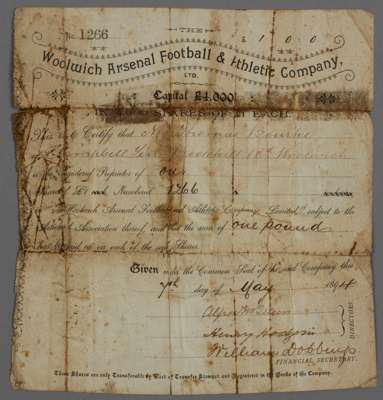 No. 1266
THE
£ 1 0 0
Woolwich Arsenal Football & Athletic Company,
LTD.
Capital £4,000
SHARES OF £1 EACH.
This is to Certify that Mr Thomas Bourke
Campbell Woolwich
Registered Proprietor of One
£1 each Numbered 1266
Woolwich Arsenal Football and Athletic Company Limited subject to the
Association thereof, and that the sum of one pound
has up on each of the said Shares
Given under the Common Seal of the said Company this
7th day of May 1894
Henry
William Dobbing
DIRECTORS.
FINANCIAL SECRETARY.
These Shares are only Transferable by Deed of Transfer Stamped and Registered in the Books of the Company.